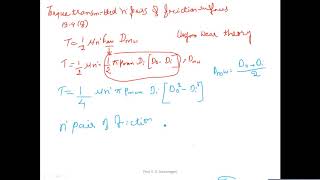 Torque transmitted n' pairs of friction surfaces
T = 1/2 μ n' Dmw Uniform Wear theory
T = 1/2 μ n' 1/2 π pmax Di [Do - Di] × Dmw Dmw = Do + Di / 2
T = 1/4 μ n' π pmax Di [Do² - Di²]
n' pair of friction